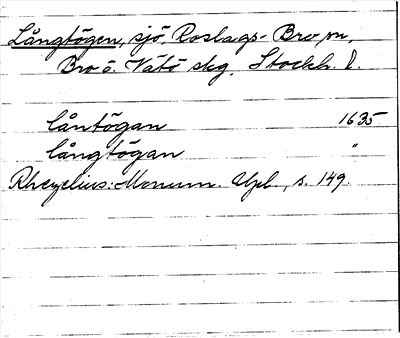 Långtögen, sjö, Roslags-Bro sn,
Bro o. Vätö skg, Stockh. l.
låntögan 1635
långtögan "
Rhezelius: Monum. Upl., s. 149.